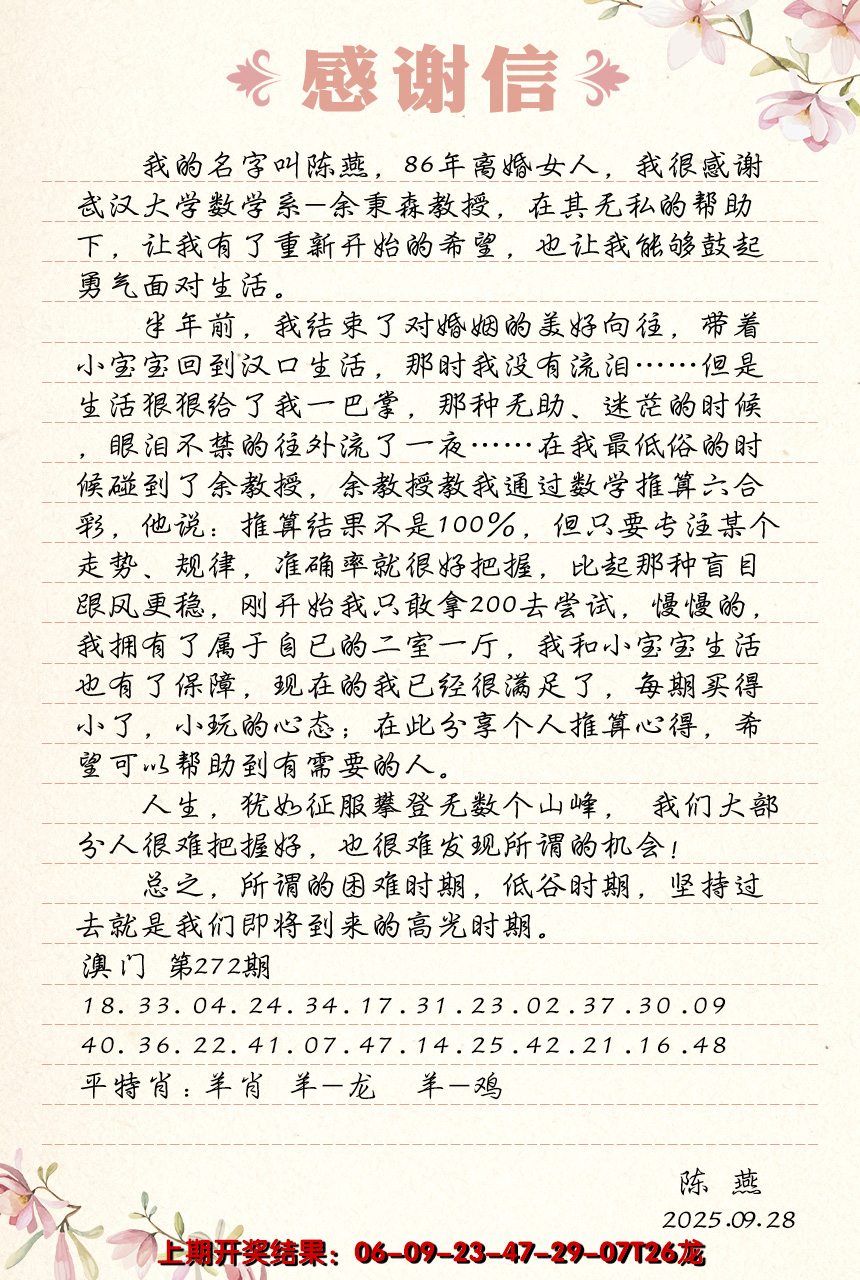 感谢信
我的名字叫陈燕，86年离婚女人，我很感谢
武汉大学数学系—余秉森教授，在其无私的帮助
下，让我有了重新开始的希望，也让我能够鼓起
勇气面对生活。
半年前，我结束了对婚姻的美好向往，带着
小宝宝回到汉口生活，那时我没有流泪……但是
生活狠狠给了我一巴掌，那种无助、迷茫的时候
，眼泪不禁的往外流了一夜……在我最低俗的时
候碰到了余教授，余教授教我通过数学推算六合
彩，他说：推算结果不是100%，但只要专注某个
走势、规律，准确率就很好把握，比起那种盲目
跟风更稳，刚开始我只敢拿200去尝试，慢慢的，
我拥有了属于自已的二室一厅，我和小宝宝生活
也有了保障，现在的我已经很满足了，每期买得
小了，小玩的心态；在此分享个人推算心得，希
望可以帮助到有需要的人。
人生，犹如征服攀登无数个山峰， 我们大部
分人很难把握好，也很难发现所谓的机会！
总之，所谓的困难时期，低谷时期，坚持过
去就是我们即将到来的高光时期。
澳门 第272期
18.33.04.24.34.17.31.23.02.37.30.09
40.36.22.41.07.47.14.25.42.21.16.48
平特肖：羊肖 羊—龙 羊—鸡
陈 燕
2025.09.28
上期开奖结果：06-09-23-47-29-07T26龙